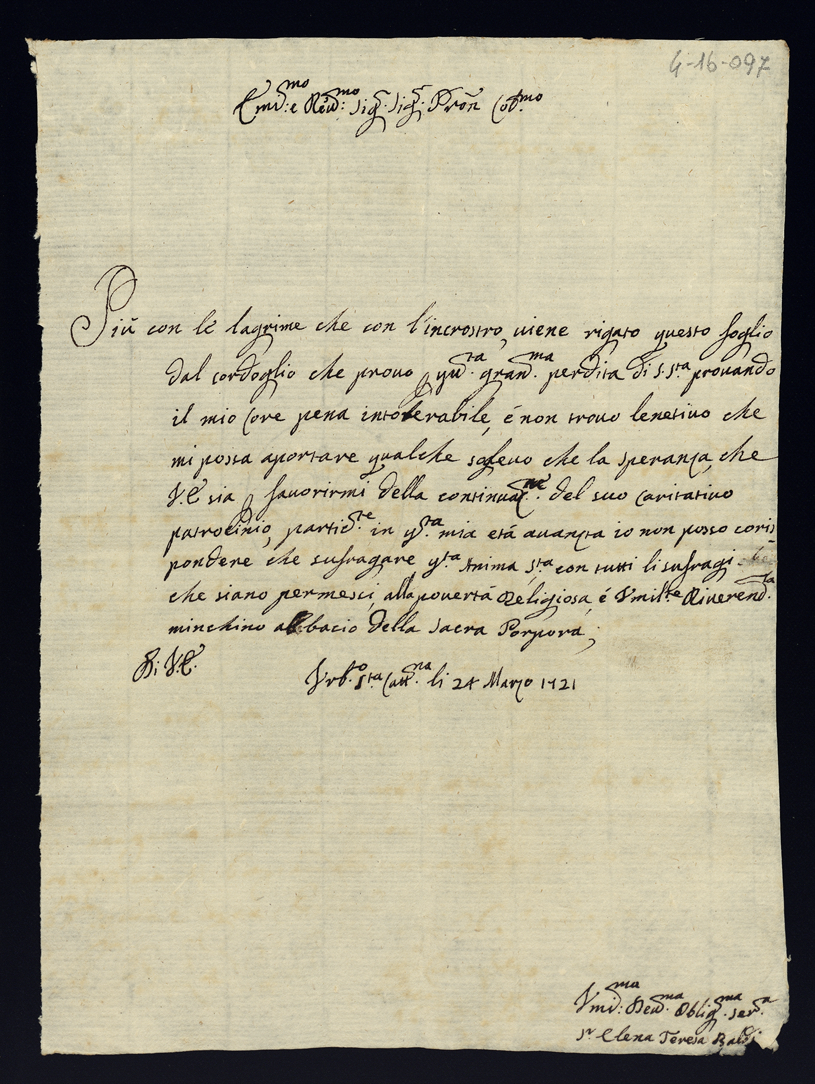 4-16-097
Emid:mo e Reud:mo Sig:r Sig:r Pron Col:mo
Più con le lagrime che con l'incrostro, uiene rigato questo foglio
dal cordoglio che prouo p gran:ma perdita di S. S.ta prouando
il mio Core pena intolerabile, é non trouo lenetiuo che
mi possa aportare qualche solleuo che la speranza, che
V.E sia p fauorirmi della continuaz:ne del suo caritatiuo
patrocinio, partic:te in q:ta mia età auanzata io non posso coris
pondere che sufragare q:ta Anima S:ta con tutti li sufragi
che siano permesci, alla pouertà Religiosa, é Vmil:te Riuerend:ta
minchino al bacio della Sacra Porpora;
Di V.E.
Vrb:o S:ta Catt:na li 24 Marzo 1721
Vmid:ma Deud:ma Oblig:ma Ser:a
S:r Elena Teresa